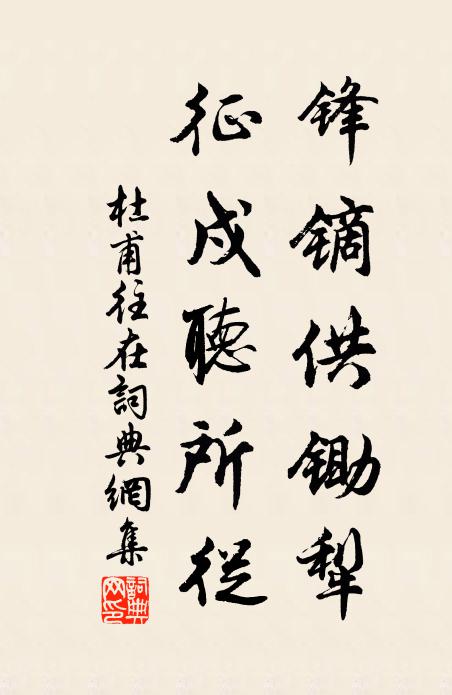 锋镝供锄犁
征戍聽所從
杜甫往在詞典網集
詞典网印